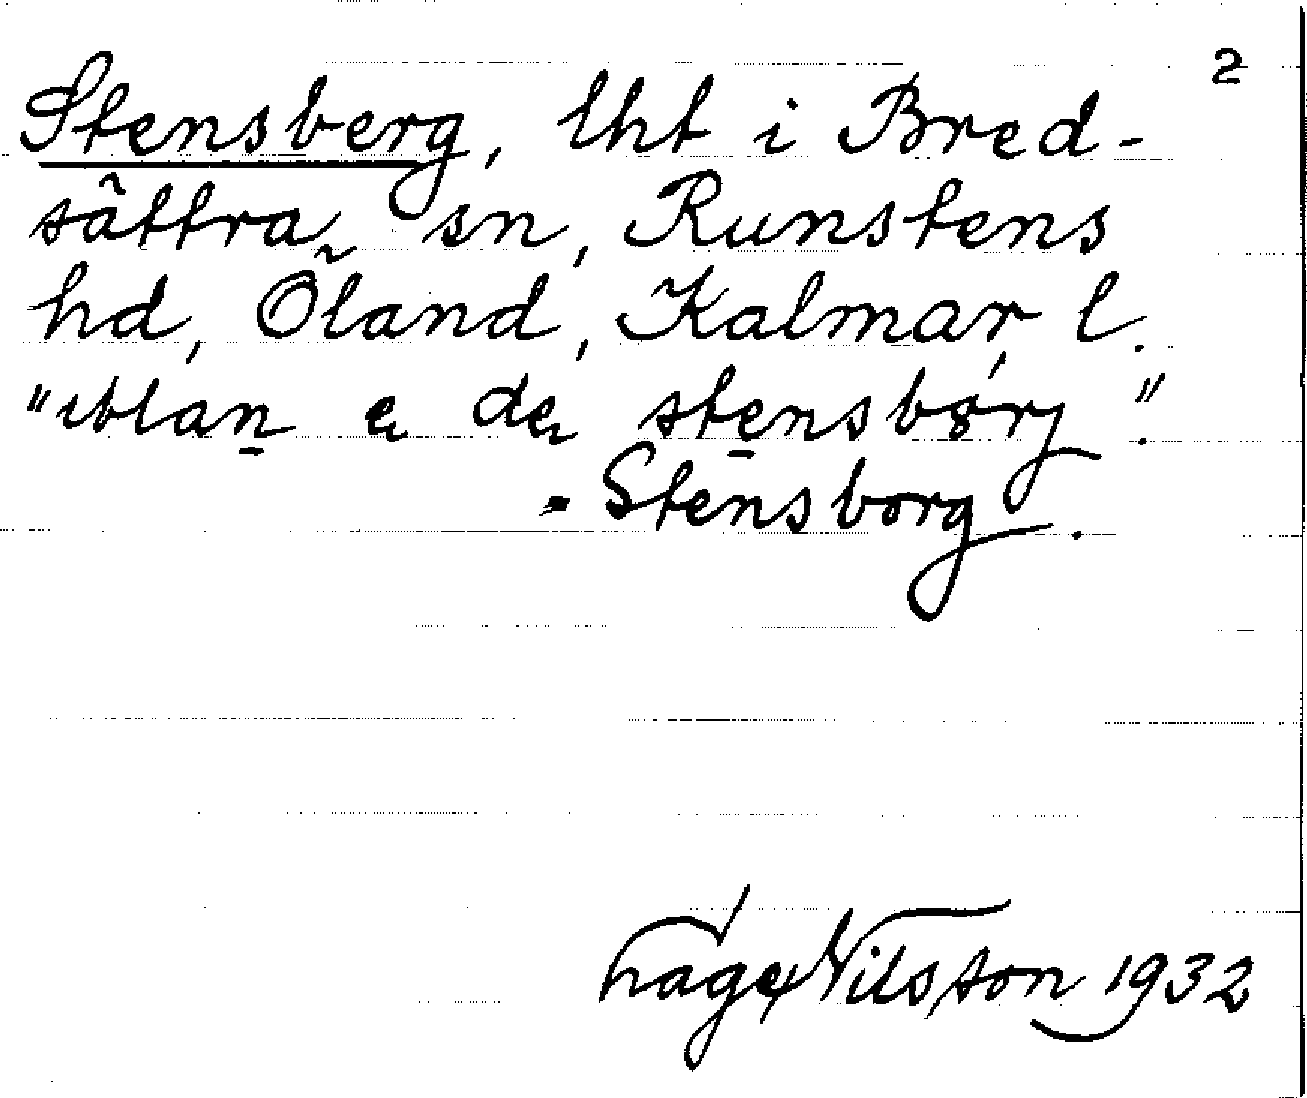 2
Stensberg, lht i Bred-
sättra sn, Runstens
hd, Öland, Kalmar l.
"ıblan e de stensbørj".
- Stensborg.
Tage Nilsson 1932